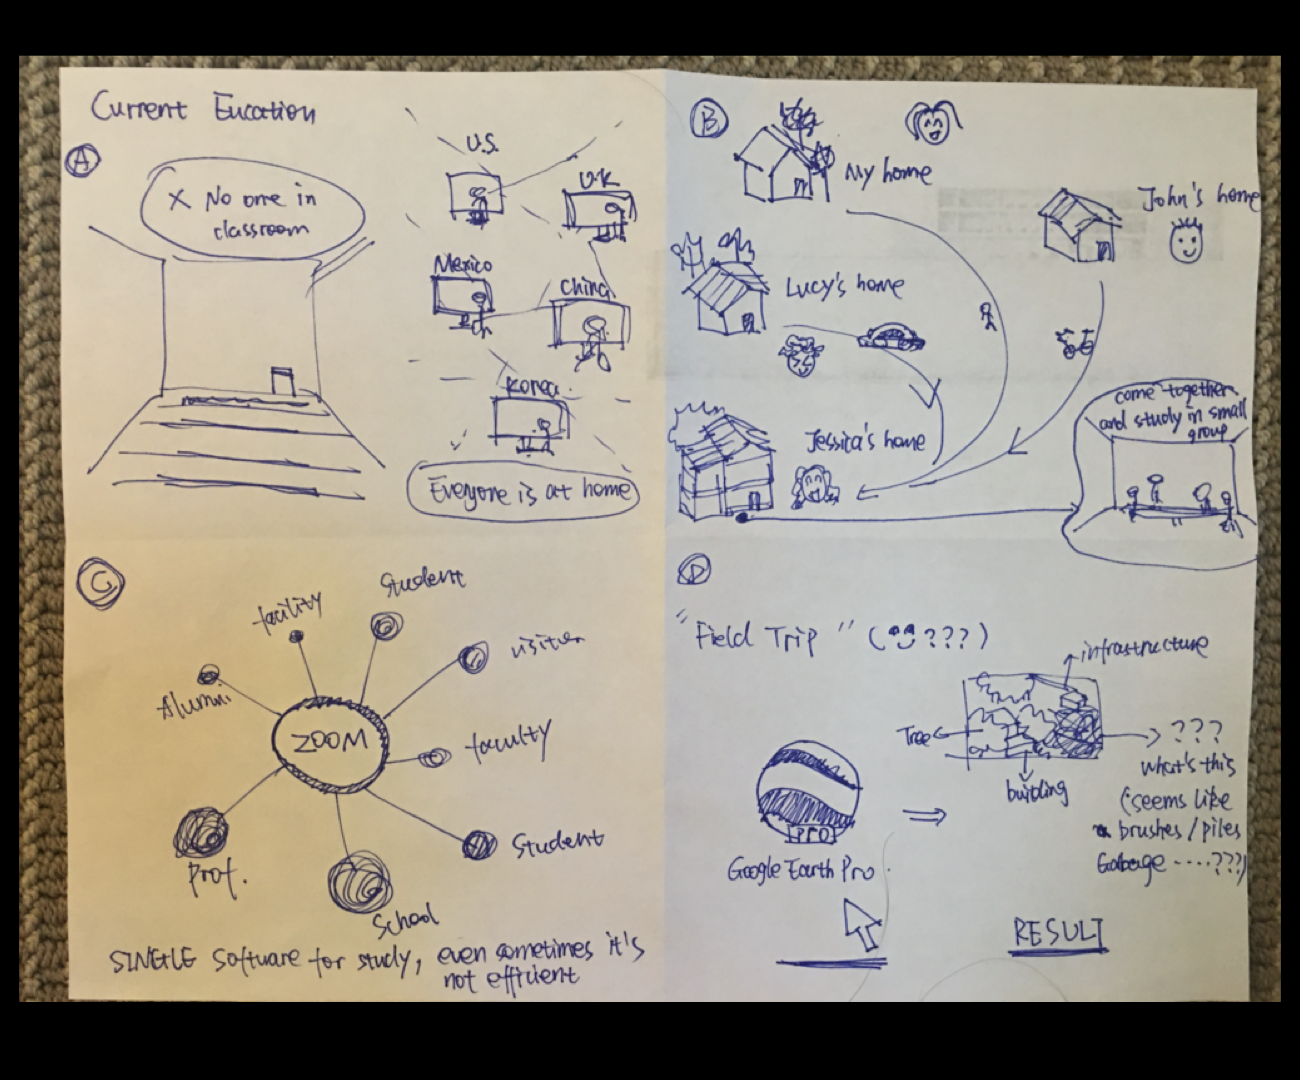 Current Eucation
A
X No one in
classroom
U.S.
U.K
Mexico
China
Korea
Everyone is at home
B
My home
John's home
Lucy's home
Jessica's home
come together
and study in small
group
C
Student
facility
visitor
Alumni
ZOOM
faculty
Student
Prof.
School
SINGLE software for study, even sometimes it's
not efficient
D
"Field Trip" (???)
infrastructure
Tree
building
???
what's this
(seems like
brushes/piles
Garbage ....???)
PRO
Google Earth Pro
RESULT